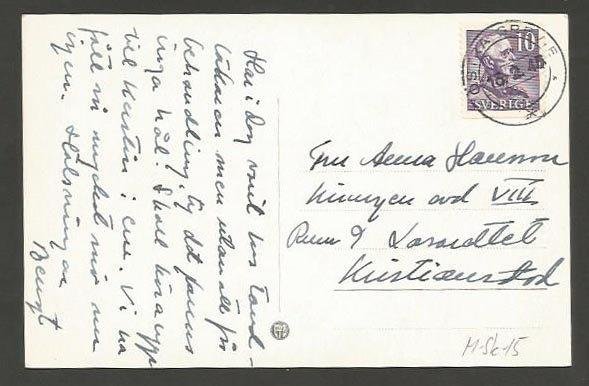 Har i dag varit hos Tand-
läkaren men utan att få
behandling, ty det fanns
inga hål! Skall köra upp
till Kerstin i em. Vi ha
fått in mycket snö nu
igen. Hälsningar
Bengt
10
SVERIGE
ÖSTRA GREVIE
Fru Anna Hansson
Kirurgen avd VIII
Rum 9 Lasarettet
Kristianstad
M-Sk-15